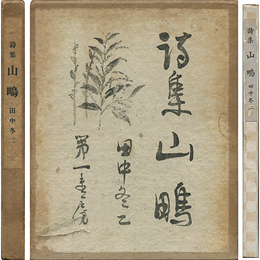 詩集 山鴫 田中冬二
詩集山鴫
田中冬二
第一書房
詩集 山鴫 田中冬二